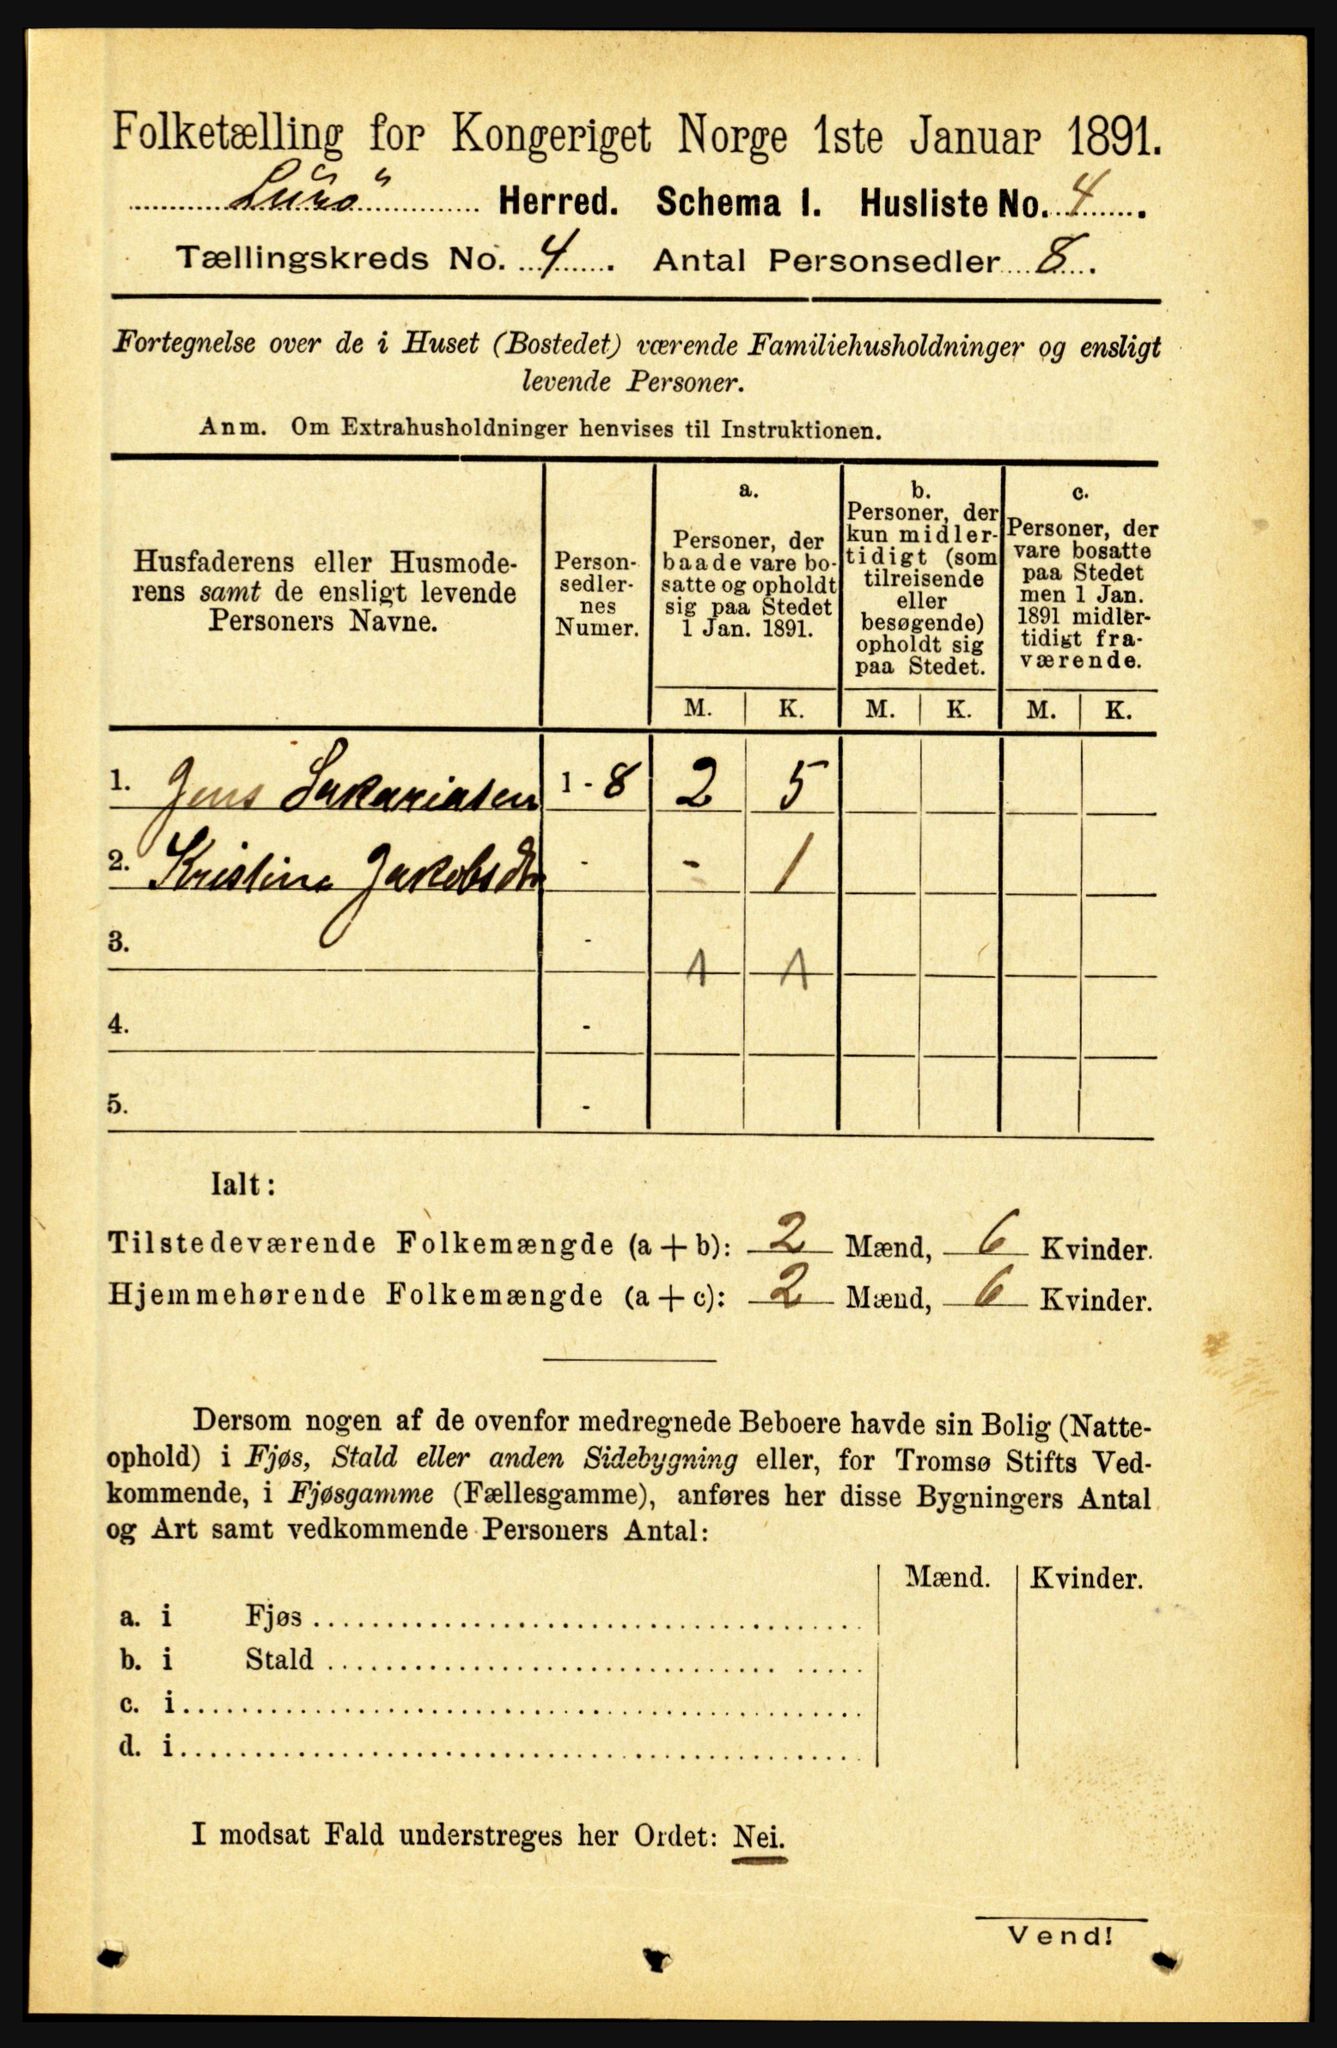 Folketælling for Kongeriget Norge 1ste Januar 1891.
Lurö Herred. Schema 1. Husliste No. 4.
Tællingskreds No. 4. Antal Personsedler 8.
Fortegnelse over de i Huset (Bostedet) værende Familiehusholdninger og ensligt
levende Personer.
Anm. Om Extrahusholdninger henvises til Instruktionen.
Husfaderens eller Husmode-
rens samt de ensligt levende
Personers Navne.
Person-
sedler-
nes
Numer.
a.
Personer, der
baade vare bo-
satte og opholdt
sig paa Stedet
1 Jan. 1891.
b.
Personer, der
kun midler-
tidigt (som
tilreisende
eller
besøgende)
opholdt sig
paa Stedet.
c.
Personer, der
vare bosatte
paa Stedet
men 1 Jan.
1891 midler-
tidigt fra-
værende.
M. K. M. K. M. K.
1. Jens Sakariasen 1 - 8 2 5
2. Kristine Jakobsdtr - - 1
3. - 1 1
4. -
5. -
Ialt:
Tilstedeværende Folkemængde (a + b): 2 Mænd, 6 Kvinder.
Hjemmehørende Folkemængde (a + c): 2 Mænd, 6 Kvinder.
Dersom nogen af de ovenfor medregnede Beboere havde sin Bolig (Natte-
ophold) i Fjøs, Stald eller anden Sidebygning eller, for Tromsø Stifts Ved-
kommende, i Fjøsgamme (Fællesgamme), anføres her disse Bygningers Antal
og Art samt vedkommende Personers Antal:
Mænd. Kvinder.
a. i Fjøs
b. i Stald
c. i
d. i
I modsat Fald understreges her Ordet: Nei.
Vend!